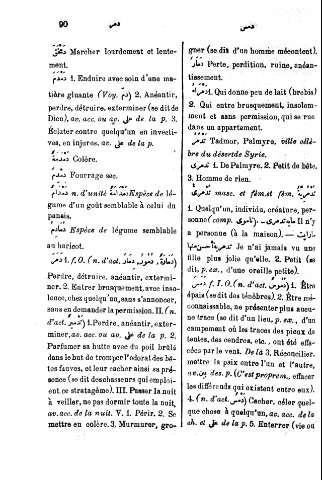 90
دمس
دمس
دمحق Marcher lourdement et lente-
ment.
دمدم 1. Enduire avec soin d'une ma-
tière gluante (Voy. دم) 2. Anéantir,
perdre, détruire, exterminer (se dit de
Dieu), av. acc. ou av. على de la p. 3.
Éclater contre quelqu'un en investi-
ves, en injures, av. على de la p.
دمدمة Colère.
دمدم Fourrage sec.
دمدام n. d'unité دمدامة Espèce de lé-
gume d'un goût semblable à celui du
panais.
Espèce de légume semblable
au haricot.
دمر f. O. (n. d'act.
Perdre, détruire, anéantir, extermi-
ner. 2. Entrer brusquement, avec inso-
lence, chez quelqu'un, sans s'annoncer,
sans en demander la permission. II. (n.
d'act. تدمير) 1. Perdre, anéantir, exter-
miner, av. acc. ou av. على de la p. 2.
Parfumer sa hutte avec du poil brûlé
dans le but de tromper l'odorat des bê-
tes fauves, et leur cacher ainsi sa pré-
sence (se dit des chasseurs qui emploi-
ent ce stratagème). III. Passer la nuit
à veiller, ne pas dormir toute la nuit,
av. acc. de la nuit. V. 1. Périr. 2. Se
mettre en colère. 3. Murmurer, gro-
gner (se dit d'un homme mécontent).
دمار Perte, perdition, ruine, anéan-
tissement.
1. Qui donne peu de lait (brebis)
2. Qui entre brusquement, insolem-
ment et sans permission, qui se rue
dans un appartement.
تدمر Tadmor, Palmyre, ville célè-
bre du désert de Syrie.
تدمرى 1. De Palmyre. 2. Petit de bête.
3. Homme de rien.
masc. et fém. et fém. تدمرية
1. Quelqu'un, individu, créature, per-
sonne (comp. Il n'y
a personne (à la maison). —
Je n'ai jamais vu une
fille plus jolie qu'elle. 2. Petit (se
dit, p. ex., d'une oreille petite).
دمس f. I. O. (n. d'act. دموس) 1. Être
épais (se dit des ténèbres). 2. Être mé-
connaissable, ne présenter plus aucu-
ne trace (se dit d'un lieu, p. ex., d'un
campement où les traces des pieux de
tentes, des cendres, etc., ont été effa-
cées par le vent. De là 3. Réconcilier,
mettre la paix entre l'un et l'autre,
av. بين des p. (C'est proprem., effacer
les différends qui existent entre eux).
4. (n. d'act. دمس) Cacher, céler quel-
que chose à quelqu'un, av. acc. de la
ch. et على de la p. 5. Enterrer (vif ou